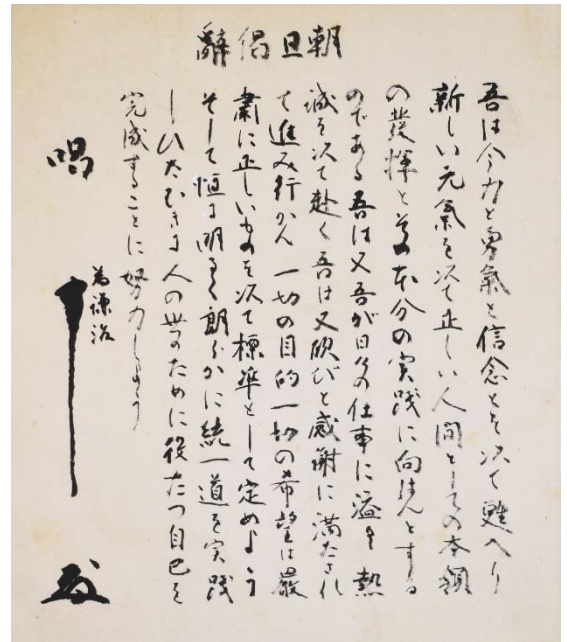 朝旦偈辭
吾は今力と勇氣と信念とを以て甦へり
新しい元氣を以て正しい人間としての本領
の發揮と其の本分の実践に向はんとする
のである 吾は又吾が日々の仕事に溢るゝ熱
誠を以て赴く 吾は又欣びと感謝に満たされ
て進み行かん 一切の目的一切の希望は嚴
肅に正しいものを以て標準として定めよう
そして恒に明るく朗らかに統一道を実践
しひたむきに人の世のために役だつ自己を
完成することに努力しよう
為謙治
唱